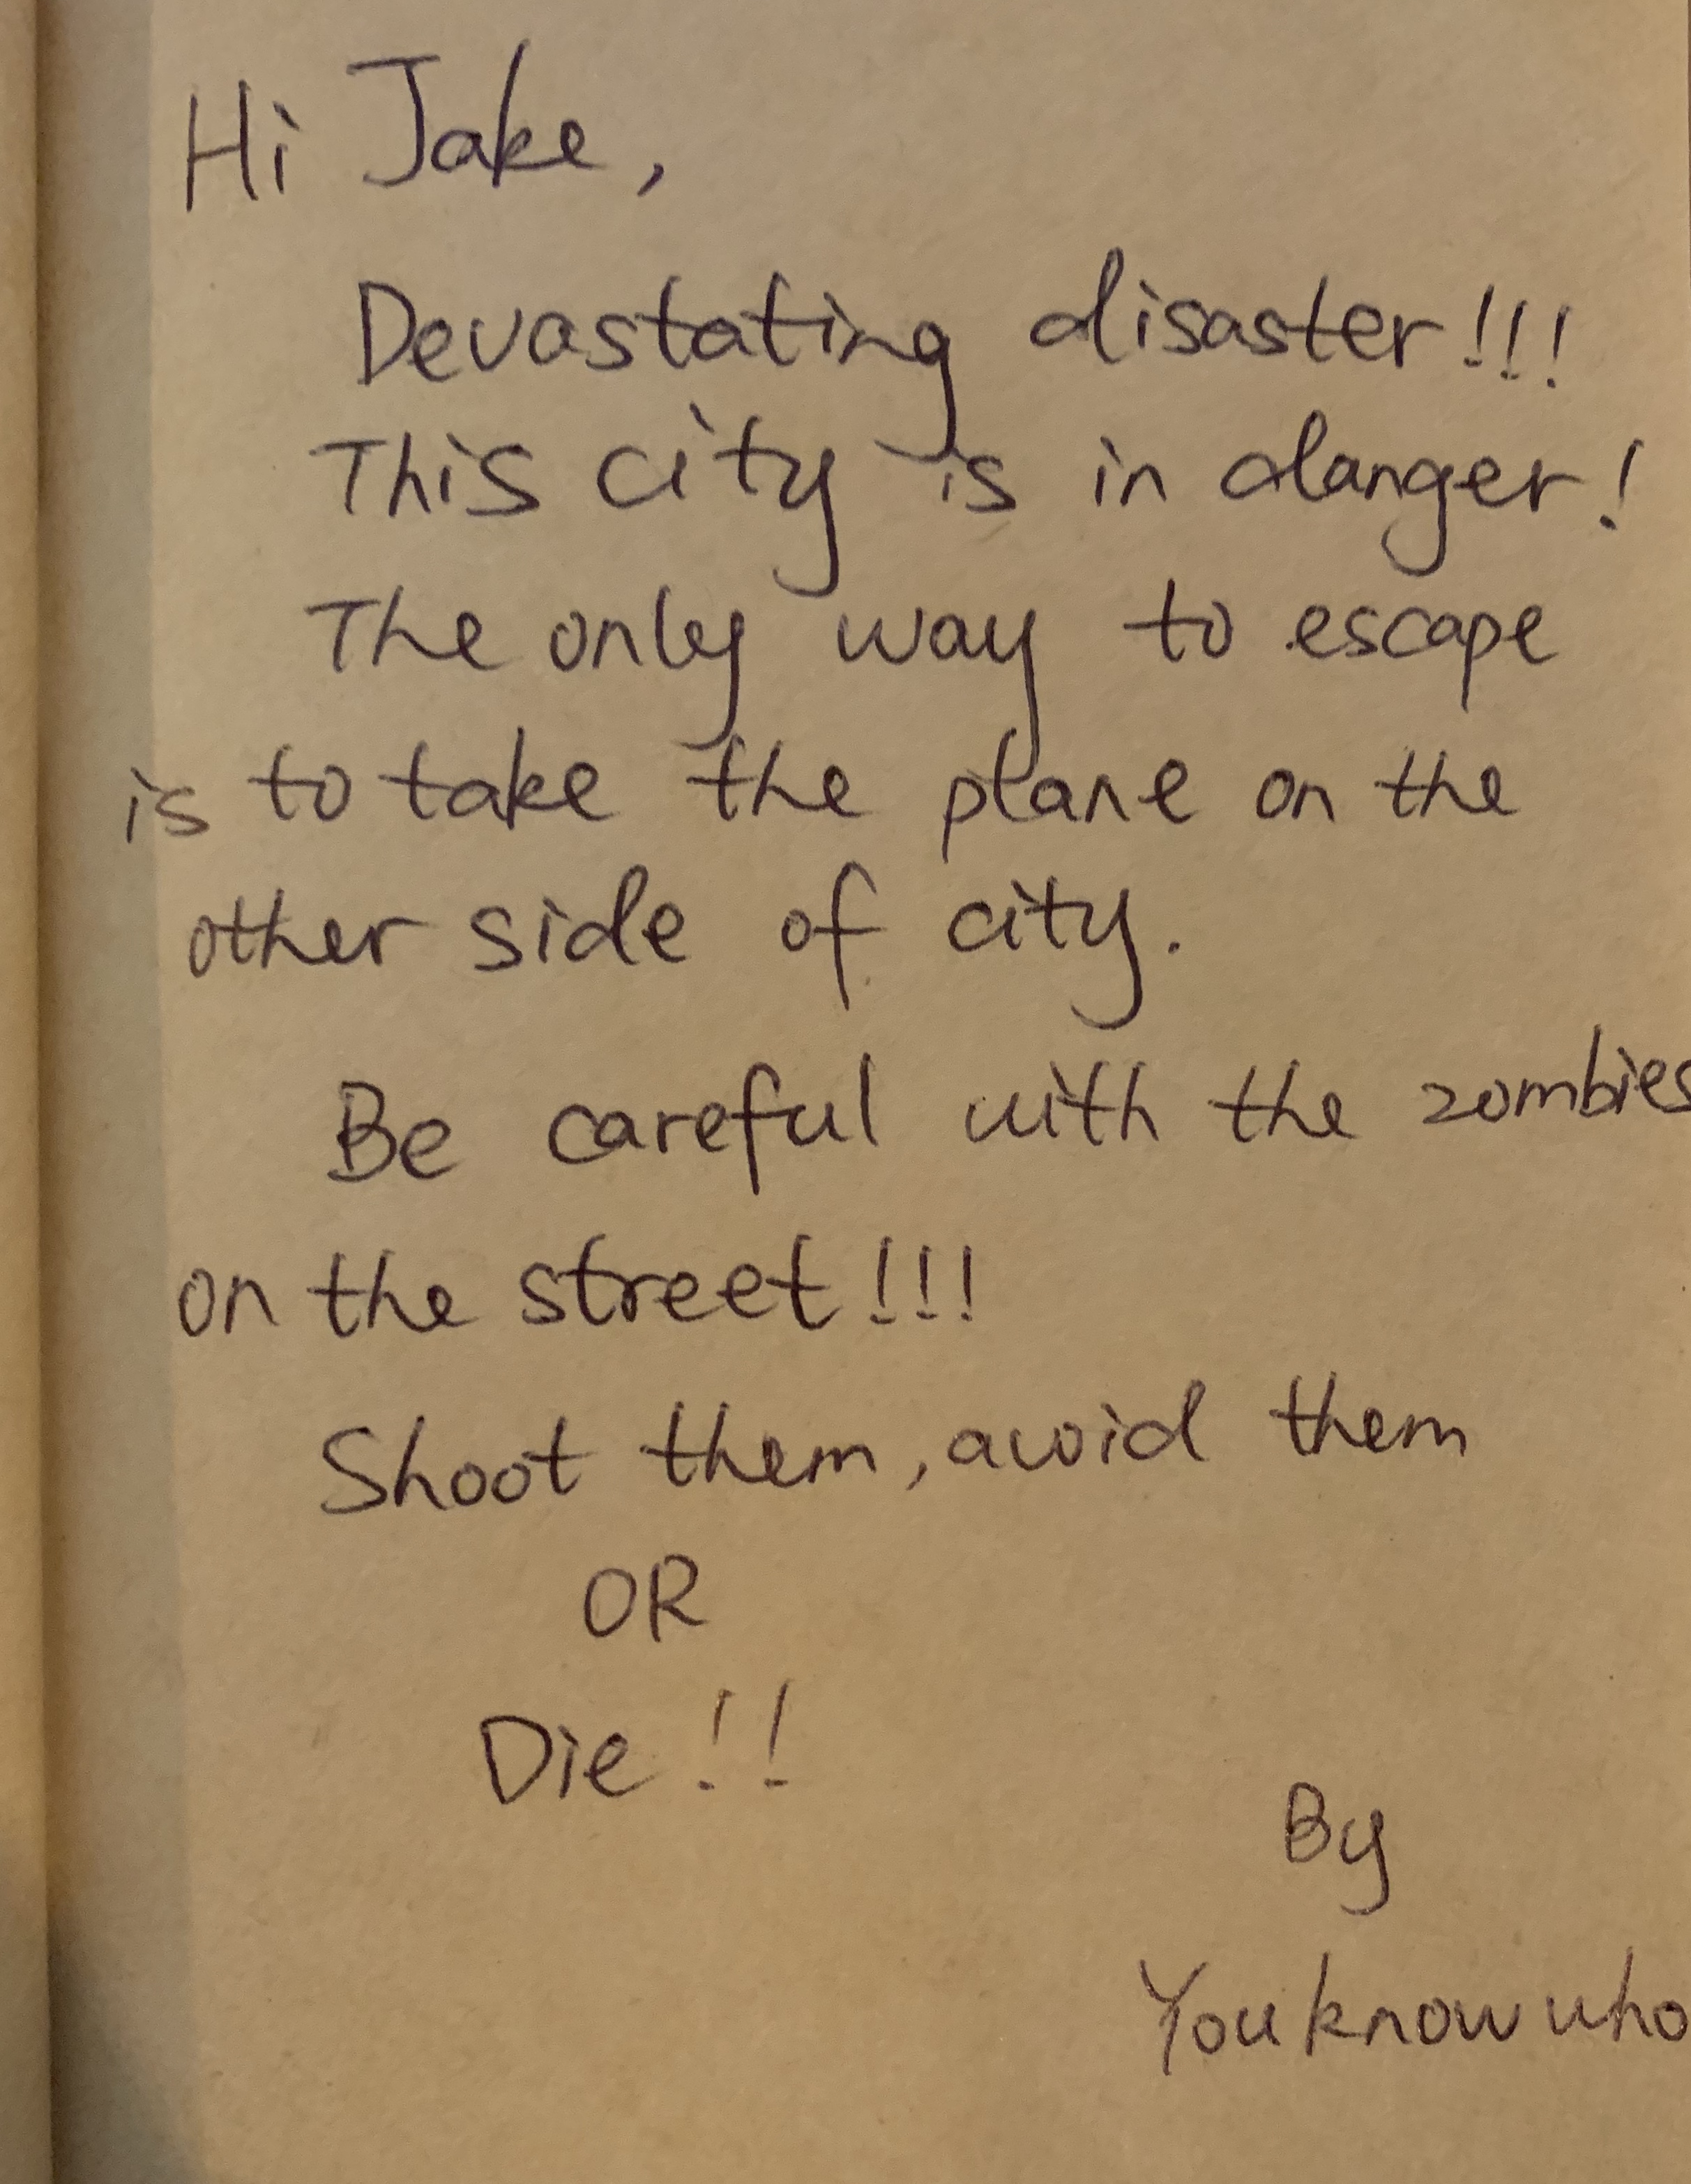 Hi Jake,
Devastating disaster!!!
This city is in danger!
The only way to escape
is to take the plane on the
other side of city.
Be careful with the zombies
on the street!!!
Shoot them, avoid them
OR
Die!!
By
You know who